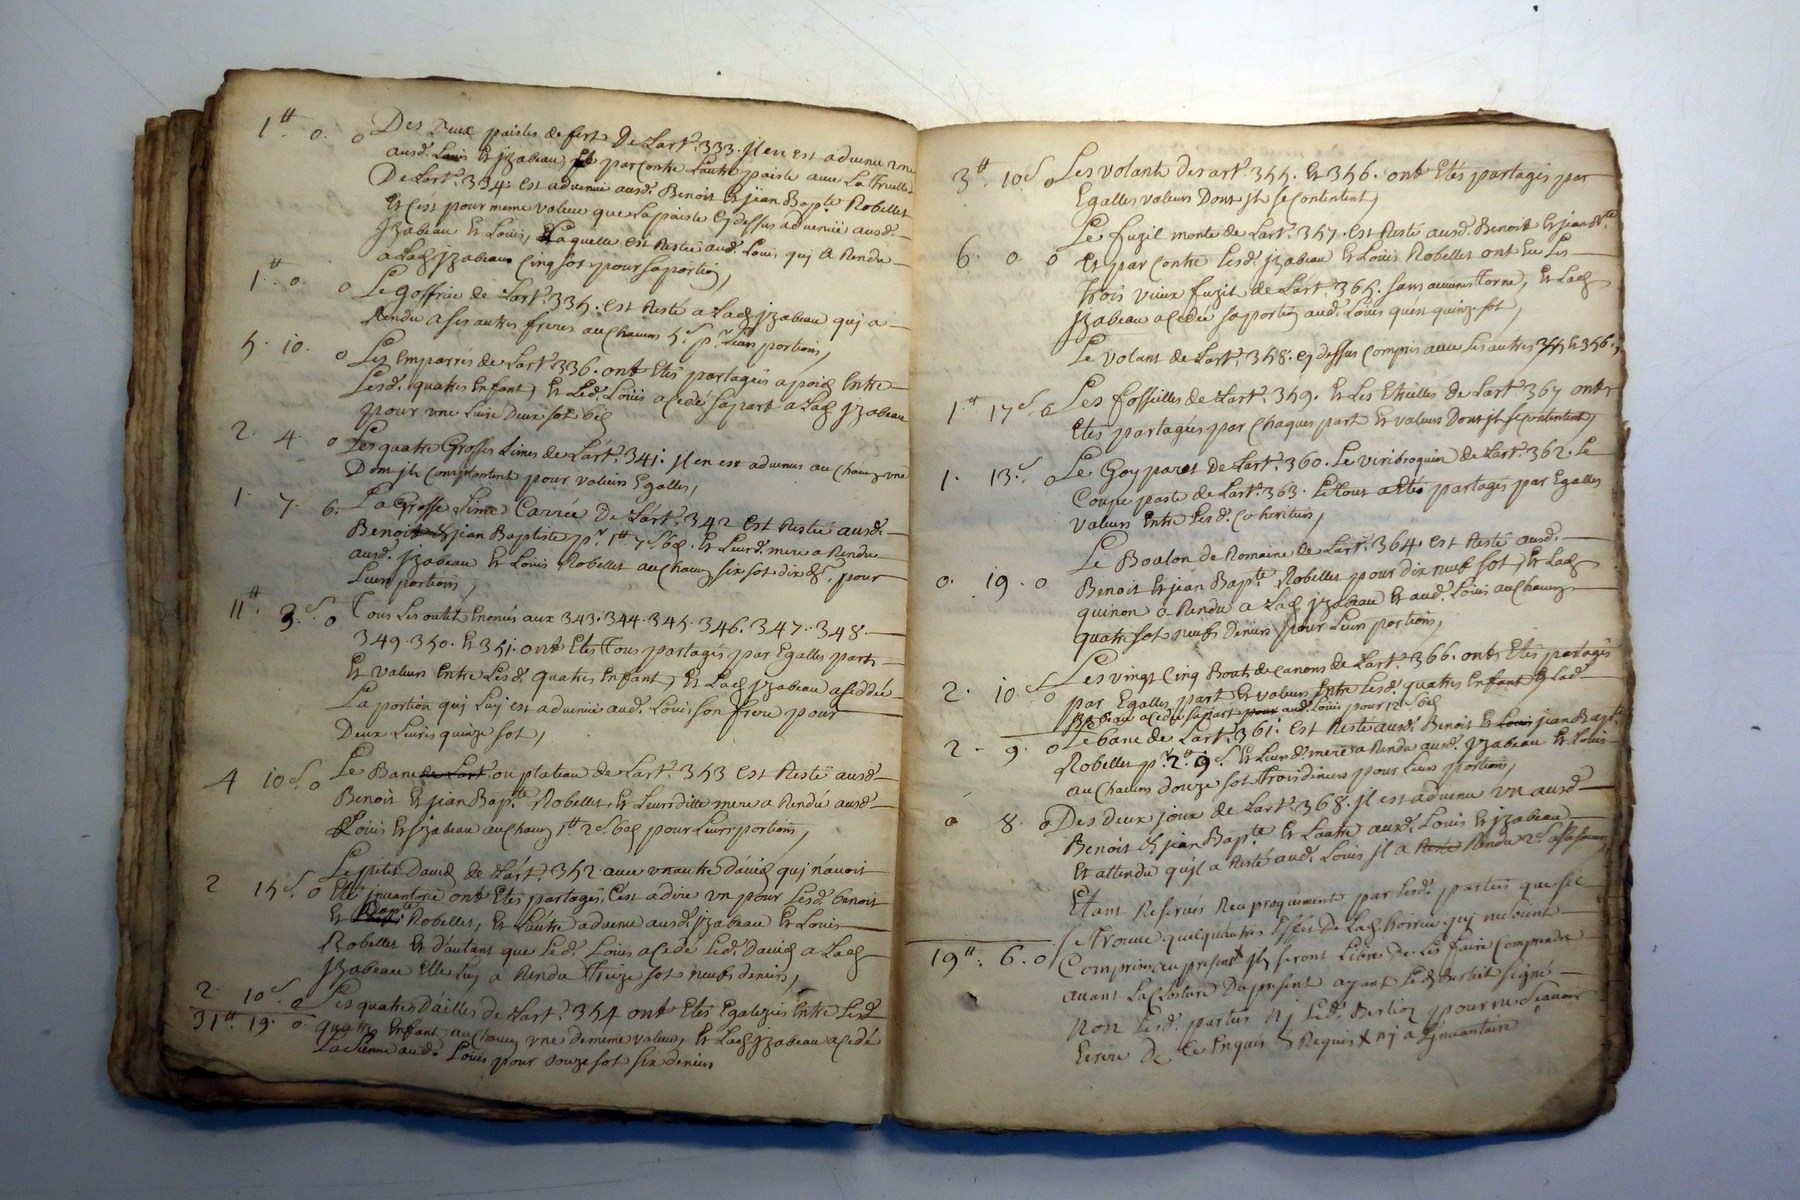 1ᵗᵗ. 0. 0 Des Deux paisles de fert De Lart. 333. Jl en est advenu une
ausd. Louis Et jzabeau, Et par Contre Lautre paisle avec La Truelle
De Lart. 334. est advenue ausd. Benoit Et jean Bapte. Robellet
Et C'est pour meme valeur que La paisle Cy dessus advenue ausd.
Jzabeau Et Louis, Laquelle est Restée aud. Louis qui a Rendu
a Lad. jzabeau Cinq sot pour sa portion,
1ᵗᵗ. 0. 0 Le goffrier de Lart. 335. est Resté a Lad. jzabeau qui a
Rendu a ses autres freres au Chacuns 5s. pr. Leurs portions,
5. 10. 0 Les Emparres de Lart. 336. ont Etés partagées a poid Entre
Lesd. quatres Enfant, Et Led. Louis a Cedé sa part a Lad. jzabeau
pour une Livre Deux sot 6d
2. 4. 0 Les quatre Grosses Limes de Lart. 341. Jl en est advenus au Chacun une
Dont jls Comptentent pour valeurs Egalles,
1. 7. 6. La Grosse Lime Carrée De Lart. 342 est Restée ausd.
Benoit Et jean Baptiste pr. 1ᵗᵗ 7s. 6d. Et Leurd. mere a Rendu
ausd. Jzabeau Et Louis Robellet au Chacun six sot dix d. pour
Leurs portions,
11ᵗᵗ. 3.s 0 Tous Les outils Enoncés aux 343. 344. 345. 346. 347. 348.
349. 350. Et 351. ont Etés Tous partagés par Egalles parts
Et valeurs Entre Lesd. quatres Enfant, Et Lad. jzabeau a Ceddée
La portion qui Luy est advenue aud. Louis son frere pour
Deux Livres quinze sot,
4 10s. 0 Le Banc de Lart. ou plateau de Lart. 353 est Resté ausd.
Benoit Et jean Bapte. Robellet, Et Leurditte mere a Rendu ausd.
Louis Et jzabeau au Chacun 1ᵗᵗ 2s 6d pour Leurs portions,
Le petit David de Lart. 352 avec un autre David qui n'avoit
2 15s. 0 Eté jnvantorié ont Etés partagés, C'est a dire un pour Lesd. benoit
Et Bapte. Robellet, Et Lautre advenu ausd. jzabeau Et Louis
Robellet Et d'autant que Led. Louis a Cedé Led. David a Lad.
jzabeau Elle Luy a Rendu Treize sot neufs deniers,
2. 10s. 0 Les quatres Dailles de Lart. 354 ont Etés Egalizés Entre Lesd.
31ᵗᵗ. 19. 0. quatre Enfant au Chacun une de meme valeur, Et Lad. jzabeau a Cedé
La sienne aud. Louis pour douze sot six deniers
3ᵗᵗ. 10s 0 Les volants des art. 355. Et 356. ont Etés partagés par
Egalles valeurs Dont jls se Contentent,
Le fuzil monté de Lart. 357. est Resté ausd. Benoit Et jean Bte.
6. 0 0 Et par Contre Lesd. jzabeau Et Louis Robellet ont Eu Les
trois vieux fuzil de Lart. 365. sans aucunes Torne, Et Lad.
jzabeau a Cedée sa portion aud. Louis qu'est quinze sot,
Le volant de Lart. 358. Cy dessus Compris avec Les autres 355 Et 356.
1ᵗᵗ 17s. 6 Les fossilles de Lart. 359. Et Les Etrilles de Lart 367 ont
Etés partagées par Chaques part Et valeurs Dont jls se contentent,
1. 13.s 0 Le Goy parot de Lart. 360. Le viribroquin de Lart. 362. Le
Coupe paste de Lart. 363. Le tout a Etés partagés par Egalles
valeurs Entre Lesd. Coheritiers,
Le Boulon de Romaine de Lart. 364. est Resté ausd.
0. 19. 0 Benoit Et jean Bapte Robellet pour dix neuf sot, Et Lad.
quinon a Rendu a Lad. jzabeau Et aud. Louis au Chacun
quatre sot neufs Deniers pour Leurs portions,
Les vingt Cinq Bouts de Canons de Lart. 366. ont Etés partagés
2. 10.s 0 par Egalles part Et valeurs Entre Lesd. quatres Enfant Et Lad.
jzabeau a Cedé sa part pour aud. Louis pour 12s 6d
2. 9. 0 Le banc de Lart. 361. est Resté ausd. Benoit Et Louis jean Bapte
Robellet pr. 2ᵗᵗ. 9s. Et Leurd. mere a Rendu ausd. jzabeau Et Louis
au Chacuns douze sot Trois deniers pour Leurs portions,
0 8. 0 Des deux joux de Lart. 368. jl est advenu un ausd.
Benoit Et jean Bapte Et Lautre ausd. Louis Et jzabeau
Et attendu qu'jl a Resté aud. Louis jl a Resté Rendu 2s. a sa soeur,
Etant Reservés Reciproquement par Lesd. parties que s'il
se Trouve quelquautres Effet De Lad. hoirie qui ne soient
19ᵗᵗ. 6. 0 Comprins au present jls seront Libres De Les faire Comprendre
avant La Closture Du present ayant Led. Berliot signé
Non Lesd. parties nj Led. Berlioz pour ne Scavoir
Ecrire De Ce Enquis & Requis nj a Lijnvantaire